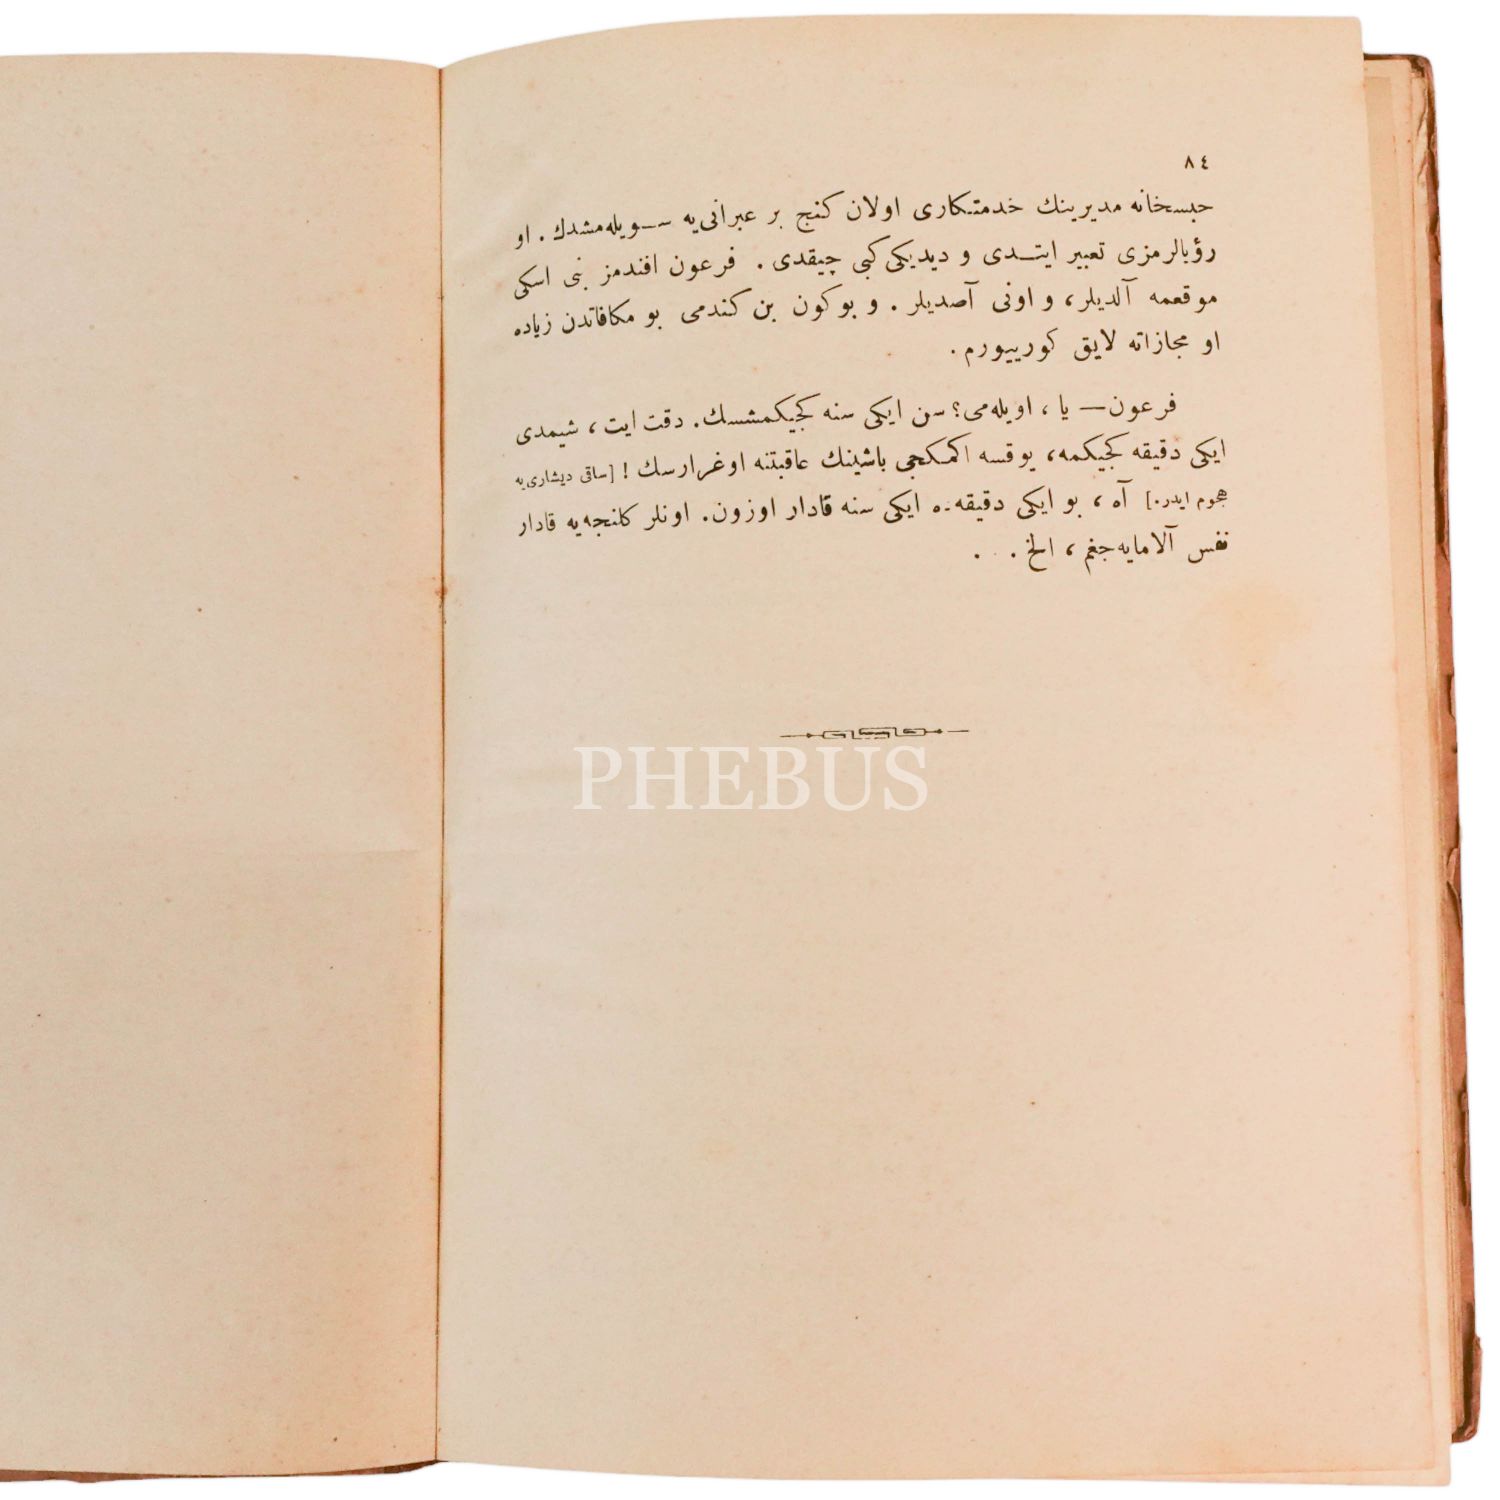 ٨٤
حبسخانه مدیرینك خدمتكاری اولان كنج بر عبرانی‌یه سویله‌مشدك. او
رؤیالرمزی تعبیر ایتدی و دیدیكی كبی چیقدی. فرعون افندمز بنی اسكی
موقعمه آلدیلر، و اونی آصدیلر. و بوكون بن كندمی بو مكافاتدن زیاده
او مجازاته لایق كورییورم.
فرعون — یا، اویله‌می؟ سن ایكی سنه كجیكمشسك. دقت ایت، شیمدی
ایكی دقیقه كجیكمه، یوقسه اكمكجی باشینك عاقبتنه اوغرارسك! [ساقی دیشاری‌یه
هجوم ایدر.] آه، بو ایكی دقیقه‌ده ایكی سنه قادار اوزون. اونلر كلنجه‌یه قادار
نفس آلامایه‌جغم، الخ. . .
PHEBUS